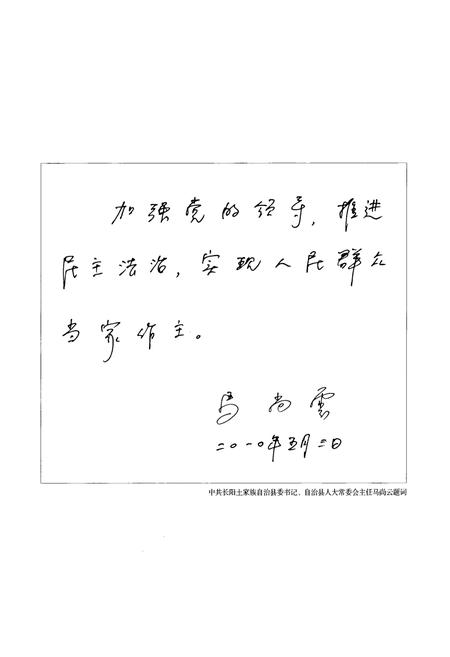 加强党的领导，推进
民主法治，实现人民群众
当家作主。
马尚云
二〇一〇年五月二日
中共长阳土家族自治县委书记、自治县人大常委会主任马尚云题词